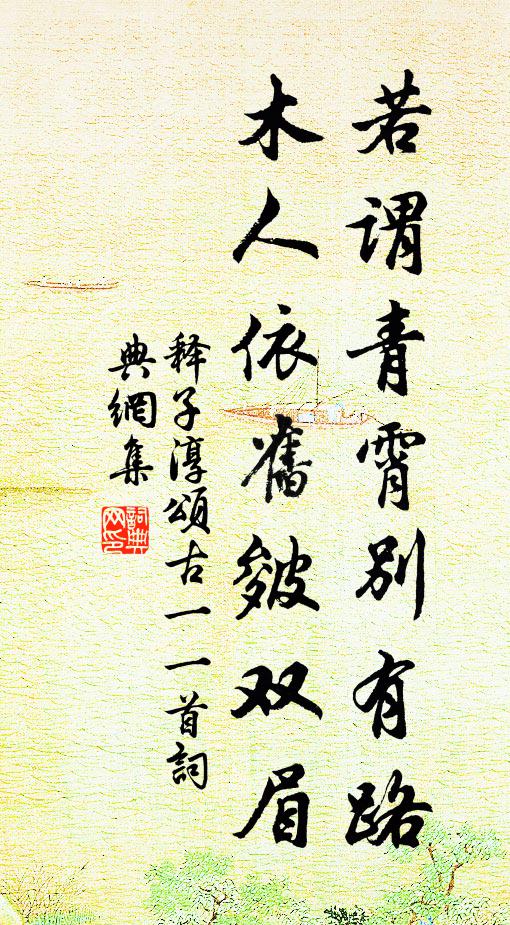 若谓青霄别有路
木人依舊皴双眉
释子淳頌古一一首詞
典網集
詞典
网印